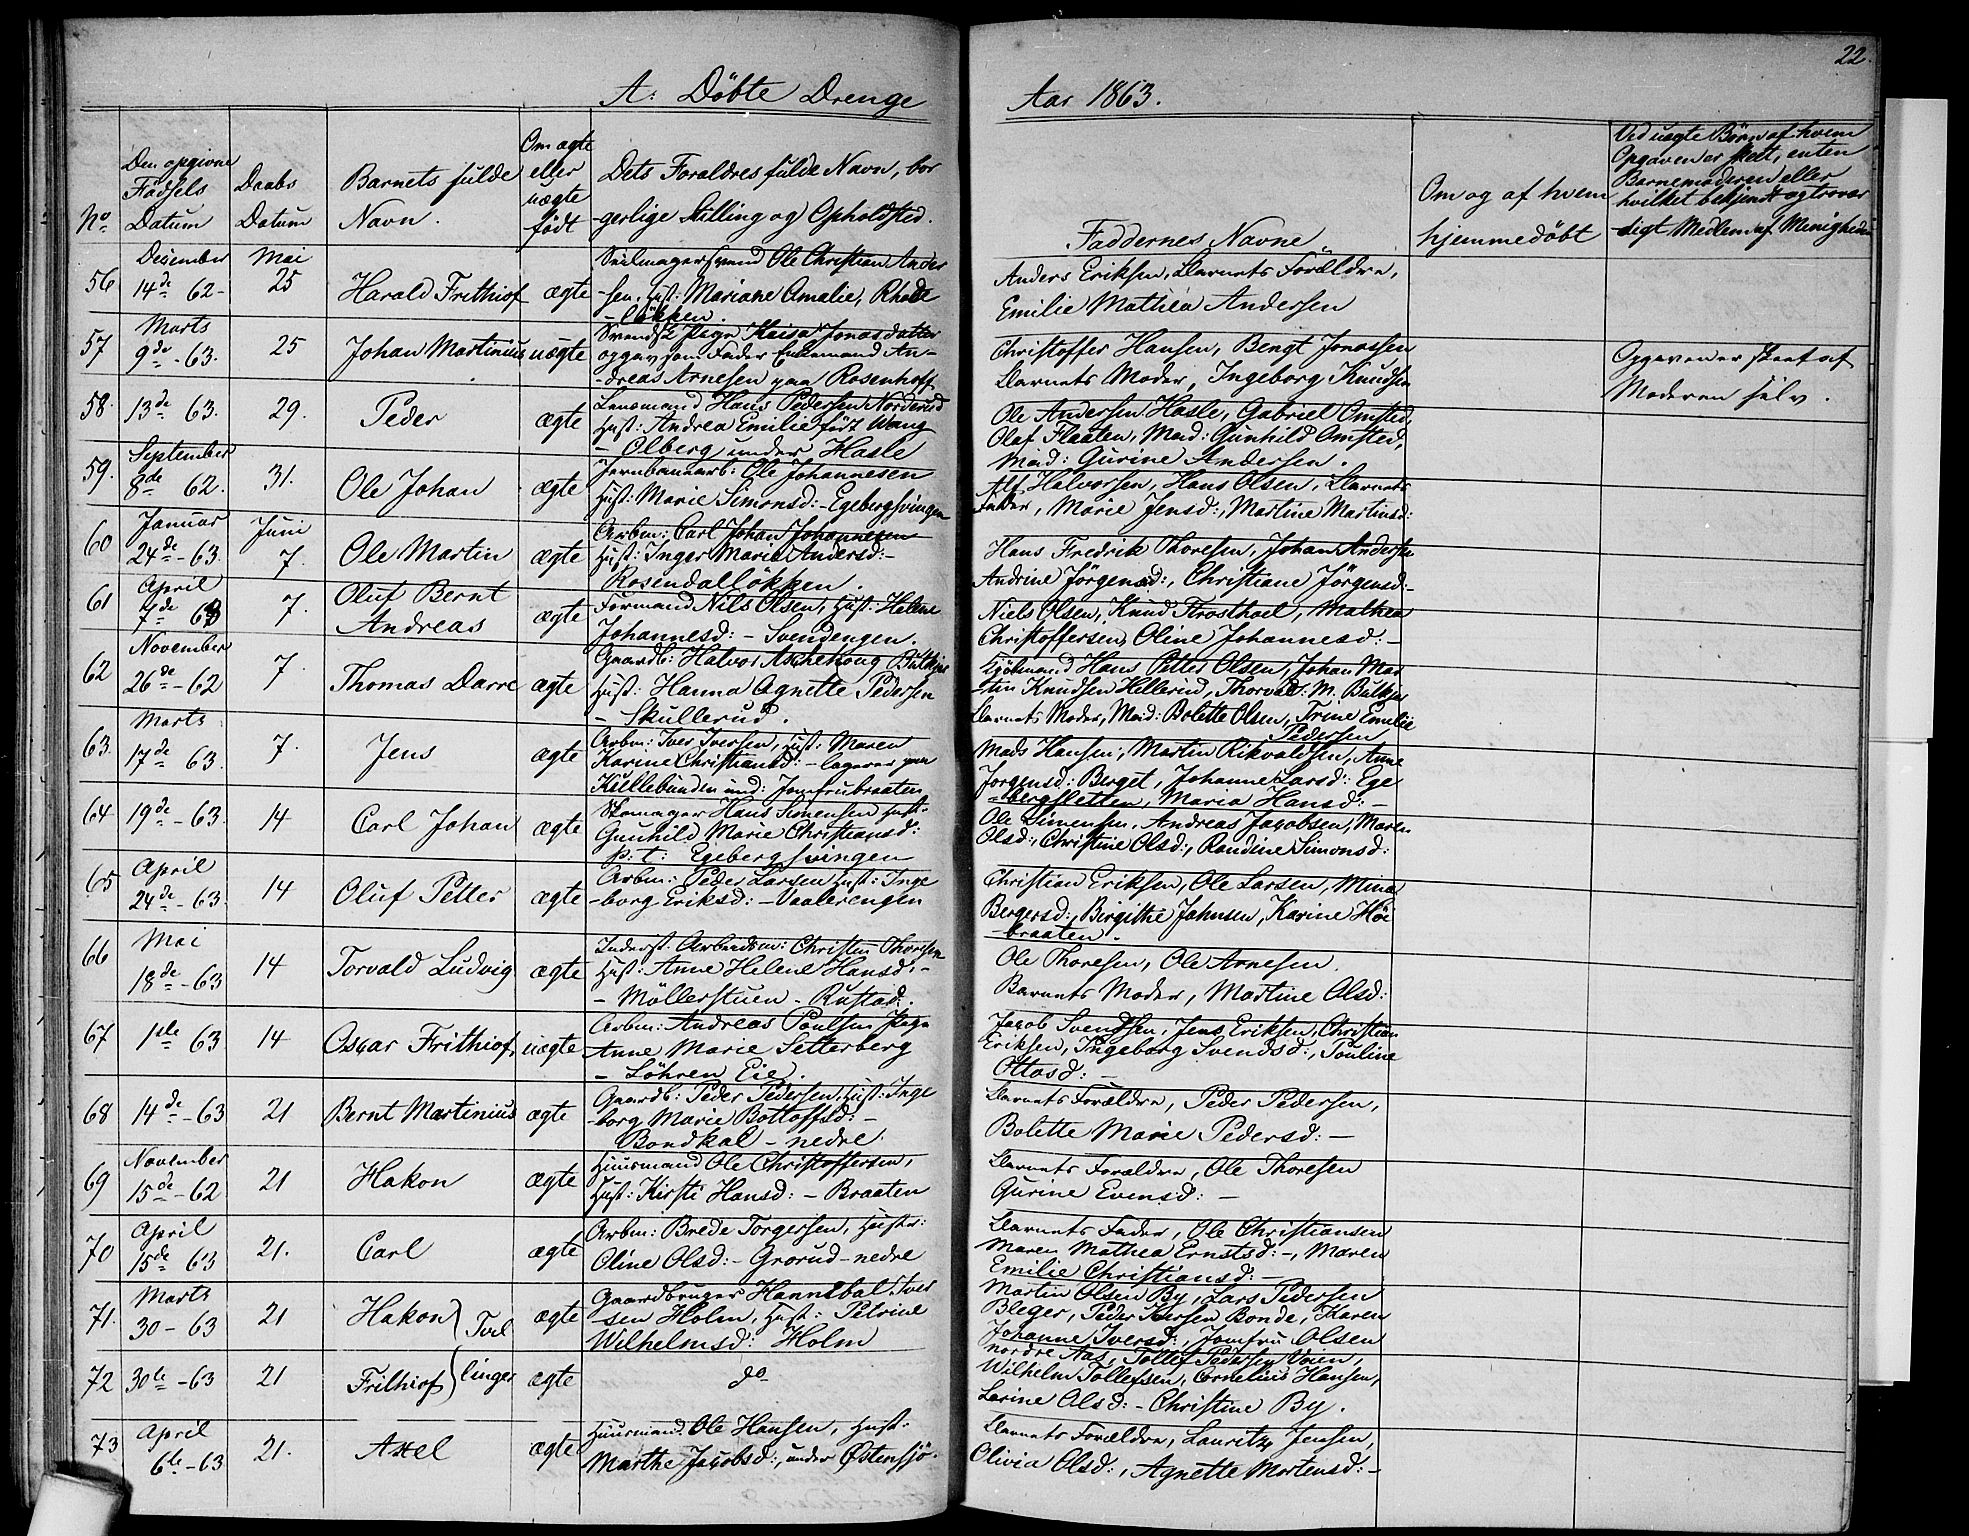 22.
A: Döbte Drenge
Aar 1863.
No
Den opgivne
Födsels
Datum
Daabs
Datum
Barnets fulde
Navn.
Om ægte
eller
uægte
födt
Dets Forældres fulde Navn, bor
-gerlige Stilling og Opholdsted.
Faddernes Navne
Om og af hvem
hjemmedöbt
Ved uægte Börn af hvem
Opgaven er skeet, enten
Barnemoderen eller
hvilket bekjendt og trovær
-digt Medlem af Menigheden
56
December
14de 62-
Mai
25
Harald Frithiof
ægte
Seilmagersvend Ole Christian Ander
-sen, Hust: Mariane Amalie, Rhode
-lökken.
Anders Eriksen, Barnets Forældre,
Emilie Mathea Andersen
57
Marts
9de -63.
25
Johan Martinius
uægte
Svensk Pige Kaisa Jonasdatter
opgav som Fader Enkemand An-
-dreas Arnesen paa Rosenhoff
Christoffer Hansen, Bengt Jonassen
Barnets Moder, Ingeborg Knudsen
Opgaven er skeet af
Moderen selv.
58.
13de 63.
29.
Peder
ægte
Lensmand Hans Pedersen Norderud
Hust: Andrea Emilie født Wang
- Olberg under Hasle
Ole Andersen Hasle, Gabriel Omsted,
Olaf Flaaten, Mad: Gunhild Omsted,
Mad: Gurine Andersen.
59.
September
8de 62.
31.
Ole Johan
ægte
Jernbanearb: Ole Johannesen
Hust: Marie Simonsd: - Egebergsvingen
Alf Halvorsen, Hans Olsen, Barnets
Fader, Marie Jensd:, Martine Martinsd:
60
Januar
24de -63.
Juni
7.
Ole Martin
ægte
Arbm: Carl Johan Johannesen
Hust: Inger Marie Andersd:-
Rosendallökken.
Hans Fredrik Thoresen, Johan Andersen
Andrine Jörgensd:, Christiane Jörgensd:-
61
April
7de 63
7.
Oluf Bernt
Andreas
ægte
Formand Nils Olsen, Hust: Helene
Johannesd: - Svendengen.
Niels Olsen, Knud Trosthoel, Mathea
Christoffersen, Oline Johannesd: -
62
November
26de -62
7.
Thomas Darre
ægte
Gaardb: Halvor Aschehoug Bulkjus
Hust: Hanna Agnette Pedersen
- Skullerud.
Kjöbmand Hans Petter Olsen, Johan Mar
-tin Knudsen Hellerud, Thorvald: M. Bulkjus
Barnets Moder, Mad: Bolette Olsen, Trine Emilie
Pedersen
63.
Marts
17de 63.
7.
Jens
ægte
Arbm: Iver Iversen, Hust: Maren
Karine Christiansd: - logerer paa
Kullebunden und: Jomfrubraaten
Mads Hansen, Martin Rikvaldsen, Anne
Jörgensd: Berget, Johanne Larsd: Ege
-bergsletten, Maria Hansd: -
64
19de -63.
14
Carl Johan
ægte
Skomager Hans Simensen Hust:
Gunhild Marie Christiansd:
p: t: Egebergsvingen
Ole Simensen, Andreas Jacobsen, Maren
Olsd:, Christine Olsd:, Randine Simonsd:
65
April
24de -63.
14
Oluf Petter
ægte
Arbm: Peder Larsen Hust: Inge
-borg Eriksd: - Vaalerengen
Christian Eriksen, Ole Larsen, Mina
Bergersd:, Birgithe Johnsen, Karine Höi
-braaten.
66
Mai
18de -63
14
Torvald Ludvig
ægte
Inderst. Arbeidsm: Christen Thoresen
Hust: Anne Helene Hansd: -
- Möllerstuen - Rustad:
Ole Thoresen, Ole Arnesen.
Barnets Moder, Martine Olsd:
67
1ste 63
14
Oscar Frithiof,
uægte
Arbm: Andreas Poulsen Pige
Anne Marie Setterberg
- Löhren Eie.
Jacob Svendsen, Jens Eriksen, Christian
Eriksen, Ingeborg Svendsd:, Pouline
Ottosd: -
68
14de -63
21
Bernt Martinius
ægte
Gaardb: Peder Pedersen, Hust: Inge
-borg Marie Bottolfsd: -
Bondkal - nedre
Barnets Forældre, Peder Pedersen,
Bolette Marie Pedersd: -
69
November
15de -62
21
Hakon
ægte
Huusmand Ole Christoffersen,
Hust: Kirsti Hansd: - Braaten
Barnets Forældre, Ole Thoresen
Gurine Evensd: -
70
April
15de 63
21.
Carl
ægte
Arbm: Brede Torgersen, Hustr:
Oline Olsd: - Grorud - nedre
Barnets Fader, Ole Christiansen
Maren Mathea Ernstsd: -, Maren
Emilie Christiansd: -
71.
Marts
30 - 63
21
Hakon
Tvil
ægte
Gaardbruger Hannibal Iver
-sen Holm, Hust: Petrine
Wilhelmsd: Holm
Martin Olsen By, Lars Pedersen
Bleger, Peder Larsen Bonde, Karen
Johanne Iversd:, Jomfru Olsen
72
30te -63
21
Frithiof
linger
ægte
do
nordre Aas, Tollef Pedersen Voien,
Wilhelm Tollefsen, Cornelius Hansen,
Larine Olsd: - Christine By.
73
April
6te -63
21.
Axel
ægte
Huusmand Ole Hansen, Hust:
Marthe Jacobsd:, under Østensjö.
Barnets Forældre, Lauritz Jensen,
Olivia Olsd:, Agnette Mortensd: -